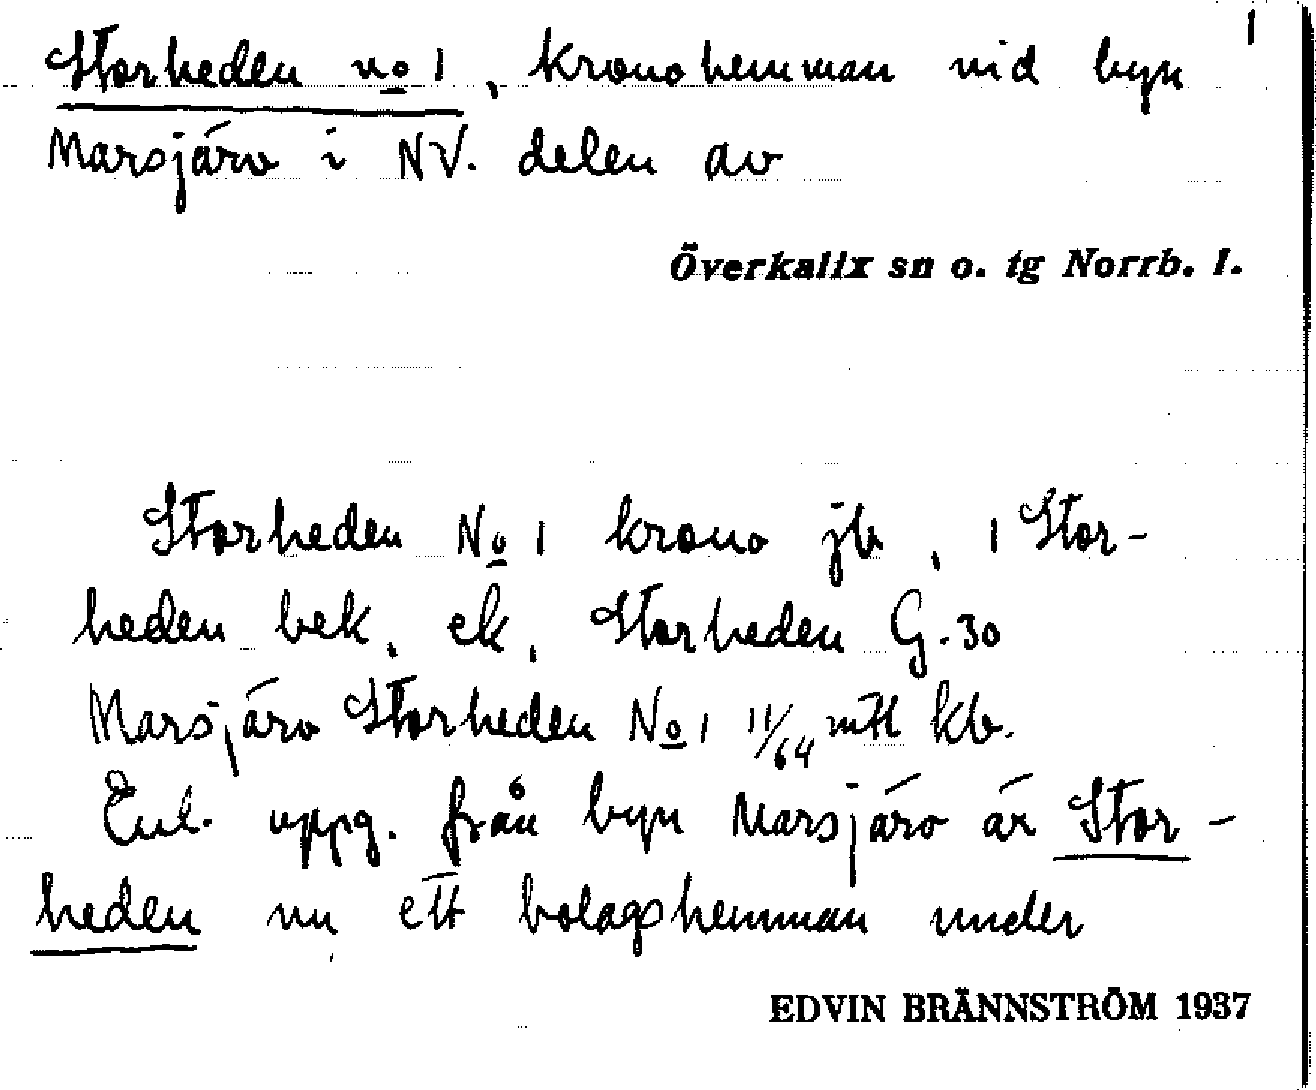 1
Storheden no 1, kronohemman vid byn
Marsjärv i NV. delen av
Överkalix sn o. tg Norrb. l.
Storheden No 1 krono jb, 1 Stor-
heden bek, ek, Storheden G. 30
Marsjärv Storheden No 1 11/64 mtl kb.
Enl. uppg. från byn Marsjärv är Stor-
heden nu ett bolagshemman under
EDVIN BRÄNNSTRÖM 1937